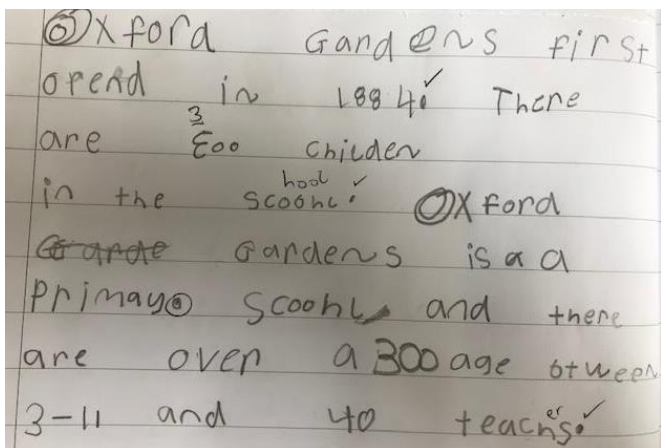 Oxford Gandens first
opend in 1884. There
are 300 childen
in the scoohl. Oxford
Garde Gardens is a a
primayo scoohl and there
are over a 300 age btween
3-11 and 40 teachers.